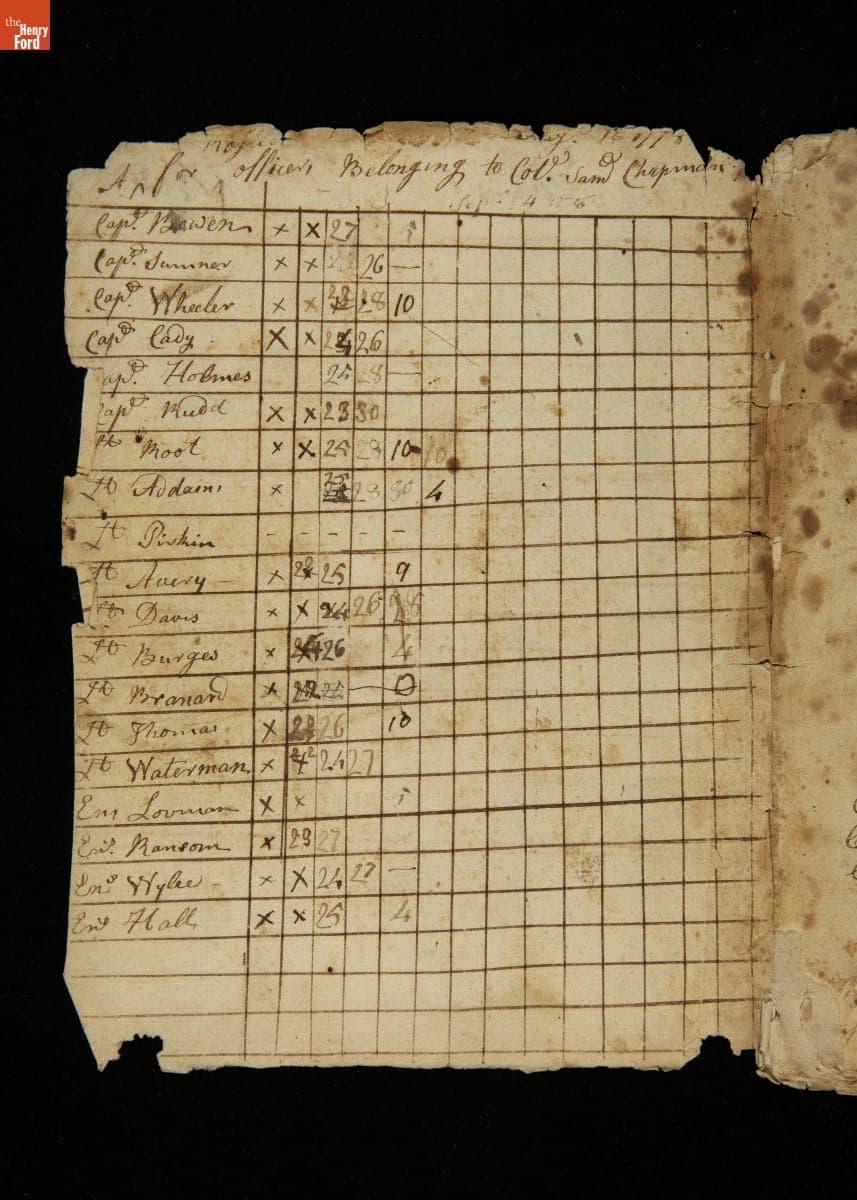 the
Henry
Ford
A for officers Belonging to Col.º Sam.d Chapman
Cap.t Bowen x x 27 5
Cap.t Sumner x x 26 —
Cap.t Wheeler x x 28 10
Cap.t Cady x x 24 26
ap.t Holmes 25 28 —
Cap.t Rudd x x 23 30
Lt Root x x 25 28 10 10
Lt Addams x 25 28 30 4
Lt Pirkin - - - - -
Lt Avery x 25 9
Lt Davis x x 24 26 28
Lt Burges x 26 4
Lt Branard x 22 0
Lt Thomas x 23 26 10
Lt Waterman x 24 27
Ens Lovman x x 5
Ens. Ransom x 23 27
Ens Wylee x x 24 27 —
Ens Hall x x 25 4